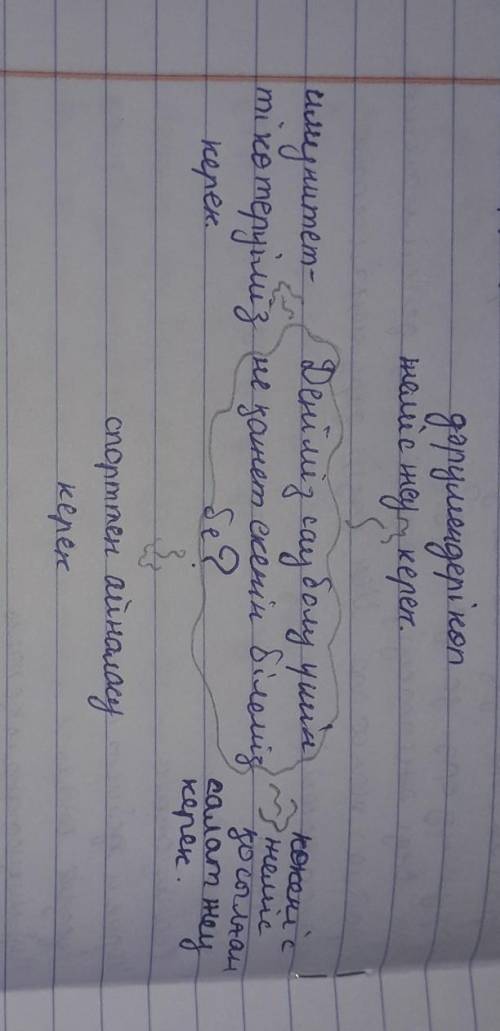 дәрумендері көп
жеміс жеу керек.
имунитет-
ті көтеруіміз
керек.
Деніміз сау болу үшін
не қажет екенін білеміз
бе?
көкөніс
жеміс
қосылған
салат жеу
керек.
спортпен айналысу
керек